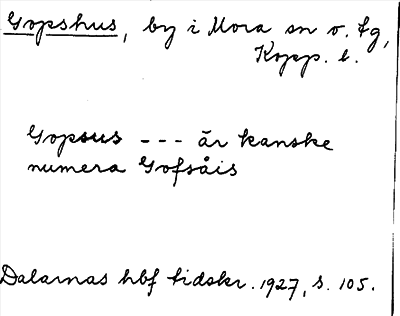 Gopshus, by i Mora sn o. tg,
Kopp. l.
Gopsus --- är kanske
numera Gofsåis
Dalarnas hbf tidskr. 1927, s. 105.